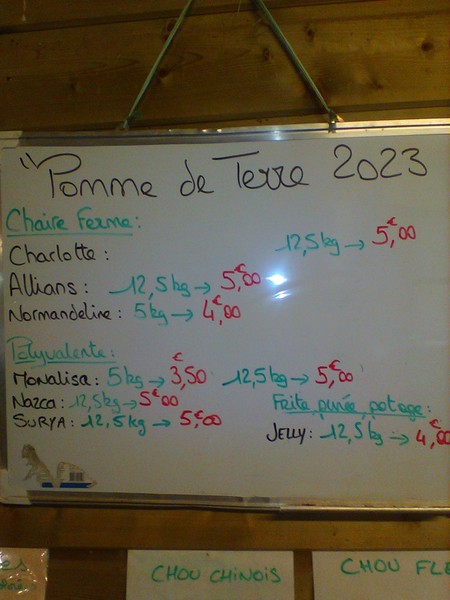 Pomme de Terre 2023
Chaire Ferme:
Charlotte: 12,5kg → 5,€00
Allians: 12,5kg → 5,€00
Normandeline: 5kg → 4,€00
Polyvalente:
Monalisa: 5kg → 3,€50 12,5kg → 5,€00
Nazca: 12,5kg → 5€00
SURYA: 12,5kg → 5,€00
Frite, purée, potage:
JELLY: 12,5kg → 4,€00
CHOU CHINOIS
CHOU FLE